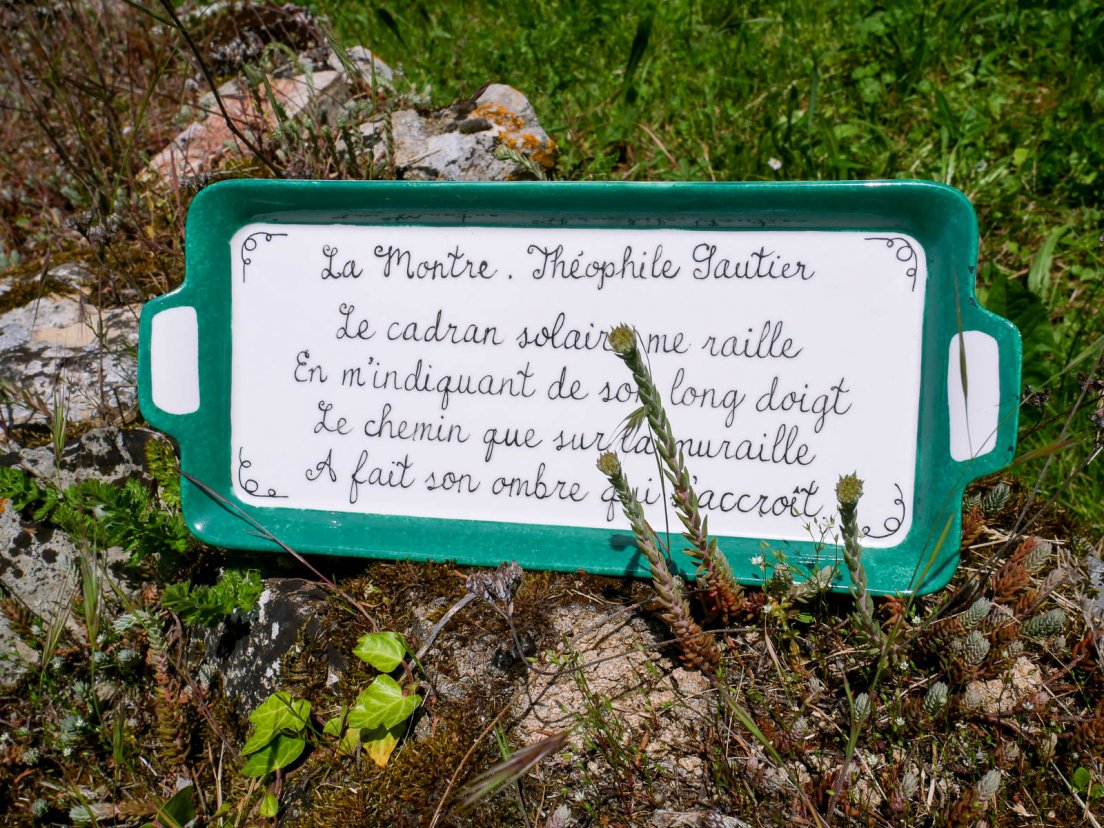 La Montre. Théophile Gautier
Le cadran solaire me raille
En m'indiquant de son long doigt
Le chemin que sur la muraille
A fait son ombre qui s'accroît.